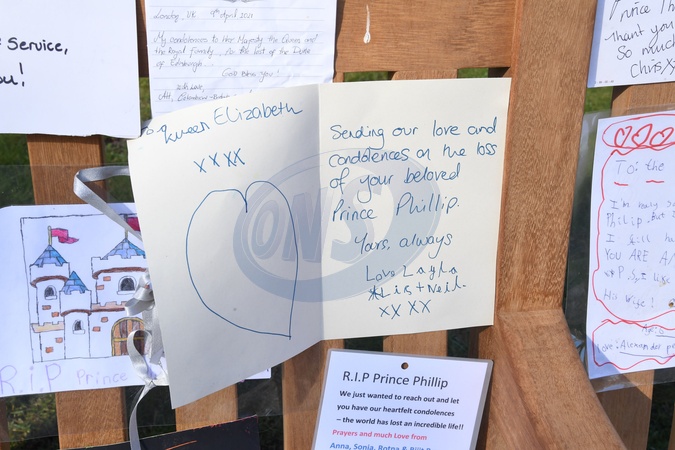 e Service,
ou!
London, UK 9th April 2021
My condolences to Her Majesty the Queen and
the Royal family. On the lost of the Duke
of Edinburgh.
God bless you!
with Love,
To Queen Elizabeth
xxxx
Sending our love and
condolences on the loss
of your beloved
Prince Phillip.
Yours, always
Love Layla
+ Neil.
xx xx
ONS
R.I.P Prince
R.I.P Prince Phillip
We just wanted to reach out and let
you have our heartfelt condolences
– the world has lost an incredible life!!
Prayers and much Love from
Anna, Sonia,
Prince
thank you
So much
Chris xx
To: the
Philip. But I
I will
YOU ARE A
His Wife!
Love: Alexander